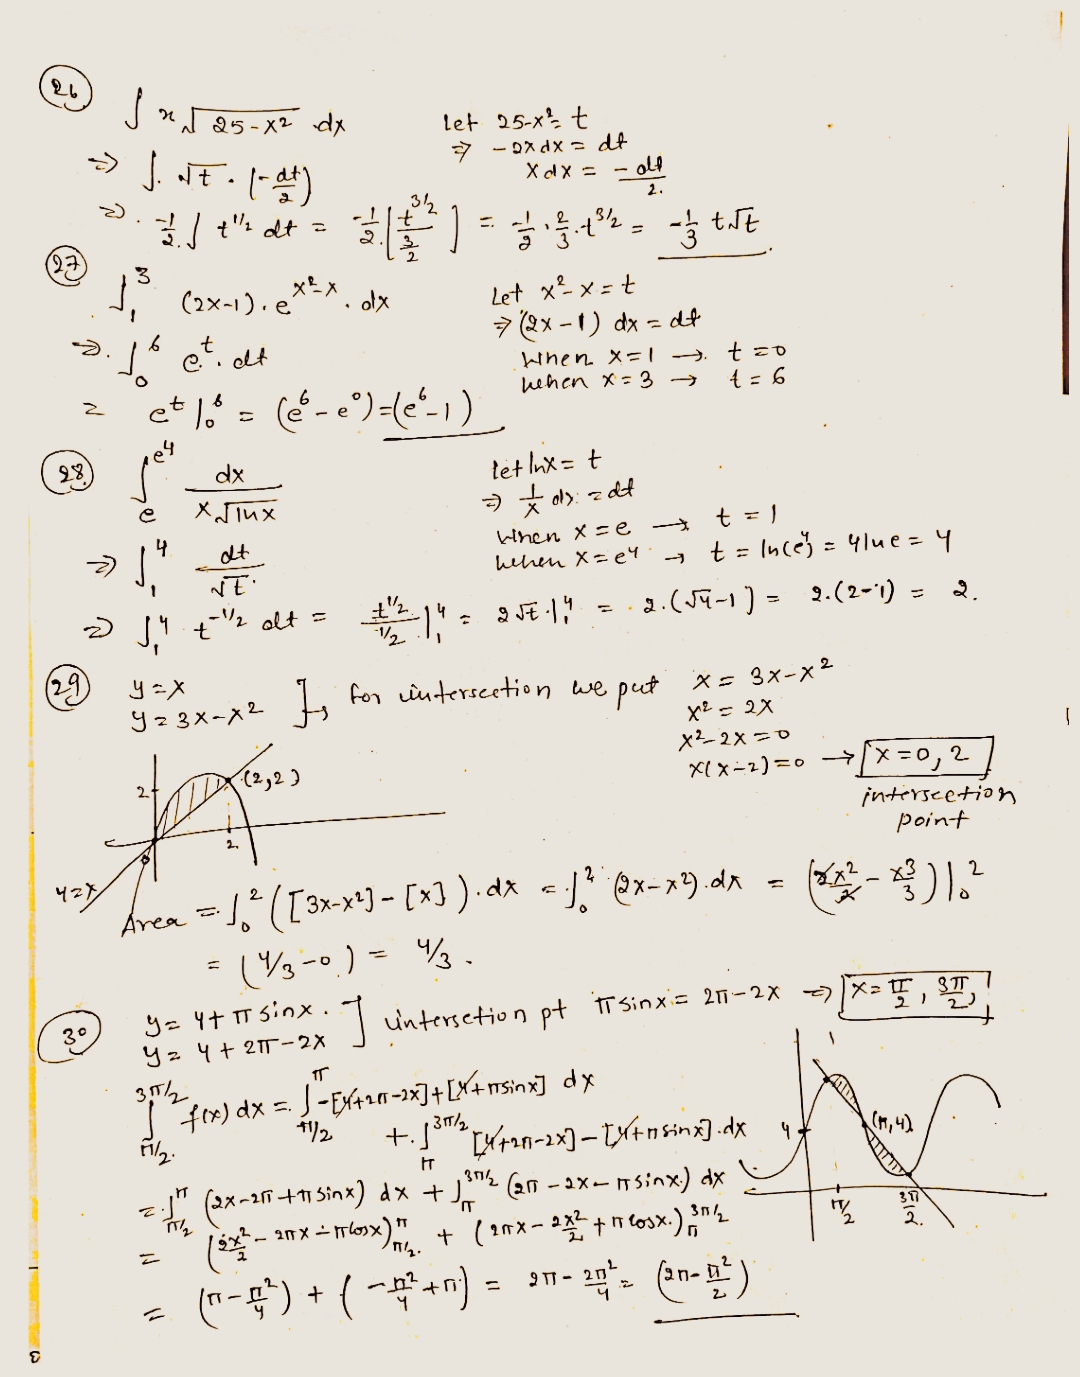 26
∫ x√25-x² dx    Let 25-x² = t
⇒ -2xdx = dt
⇒ ∫. √t . (-dt/2)    xdx = -dt/2.
⇒. -1/2.∫ t^1/2 dt = -1/2.[t^3/2 / 3/2] = -1/2 . 2/3 . t^3/2 = -1/3 t√t
27
∫₁³ (2x-1). e^x²-x . dx    Let x²-x = t
⇒ (2x-1) dx = dt
⇒. ∫₀⁶ e^t. dt    When x=1 → t=0
When x=3 → t=6
= e^t |₀⁶ = (e⁶-e⁰) = (e⁶-1)
28.
∫ₑ^e⁴ dx / x√lnx    let lnx = t
⇒ 1/x dx = dt
When x=e → t=1
⇒ ∫₁⁴ dt/√t.    When x=e⁴ → t = ln(e⁴) = 4lne = 4
⇒ ∫₁⁴ t^-1/2 dt = t^1/2 / 1/2 |₁⁴ = 2√t |₁⁴ = 2.(√4-1) = 2.(2-1) = 2.
29
y=x
y=3x-x² ] → for intersection we put    x = 3x-x²
x² = 2x
x²-2x=0
x(x-2)=0 → x=0, 2
intersection
point
2 (2,2)
2.
y=x
Area = ∫₀² ([3x-x²] - [x]). dx = ∫₀² (2x-x²).dx = (2x²/2 - x³/3)|₀²
= (4/3-0) = 4/3.
30
y = 4+π sinx.
y = 4+2π-2x ] intersetion pt π sinx = 2π-2x ⇒ x = π/2, 3π/2,
∫_π/2.^3π/2 f(x) dx = ∫_π/2^π -[4+2π-2x]+[4+πsinx] dx
+.∫_π^3π/2 [4+2π-2x]-[4+πsinx].dx
4 (π,4)
π/2 3π/2.
=.∫_π/2^π (2x-2π+πsinx) dx + ∫_π^3π/2 (2π-2x-πsinx) dx
= (2x²/2 - 2πx - πcosx)_π/2.^π + (2πx - 2x²/2 + πcosx.)_π^3π/2
= (π-π²/4) + (-π²/4+π) = 2π - 2π²/4 = (2π-π²/2)